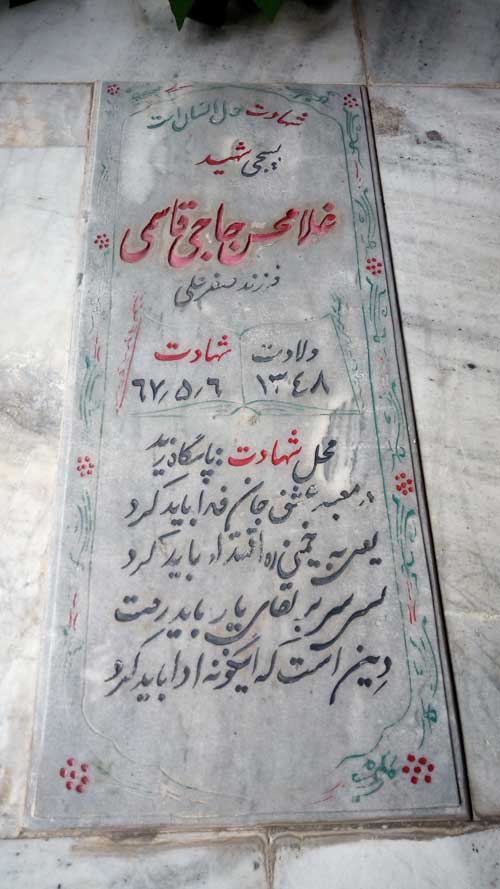 شهادت هنر مردان خداست
بسیجی شهید
غلامحسن حاجی قاسمی
فرزند صفرعلی
ولادت شهادت
۱۳۴۸ ۶۷٫۵٫۶
محل شهادت: پاسگاه زید
در معبد عشق جان فدا باید کرد
یعنی به خمینی اقتدا باید کرد
بی سر به لقای یار باید رفت
دین است که اینگونه ادا باید کرد